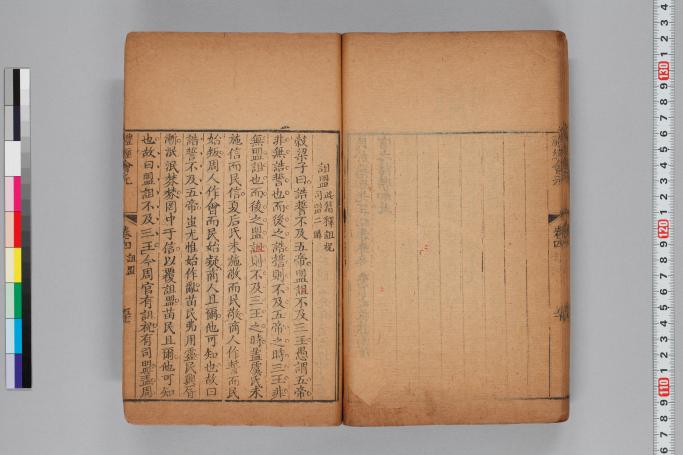 詛盟
此篇釋詛祝
司盟二職
穀梁子曰誥誓不及五帝盟詛不及三王愚謂五帝
非無誥誓也而後之誥誓則不及五帝之時三王非
無盟詛也而後之盟詛則不及三王之時蓋虞氏未
施信而民信夏后氏未施敬而民敬商人作誓而民
始叛周人作會而民始疑商人且爾他可知也故曰
誥誓不及五帝蚩尤惟始作亂苗民弗用靈民興胥
漸泯泯棼棼罔中于信以覆詛盟苗民且爾他可知
也故曰盟詛不及三王今周官有詛祝有司盟蓋周
禮經會元
卷四
詛盟
卷四